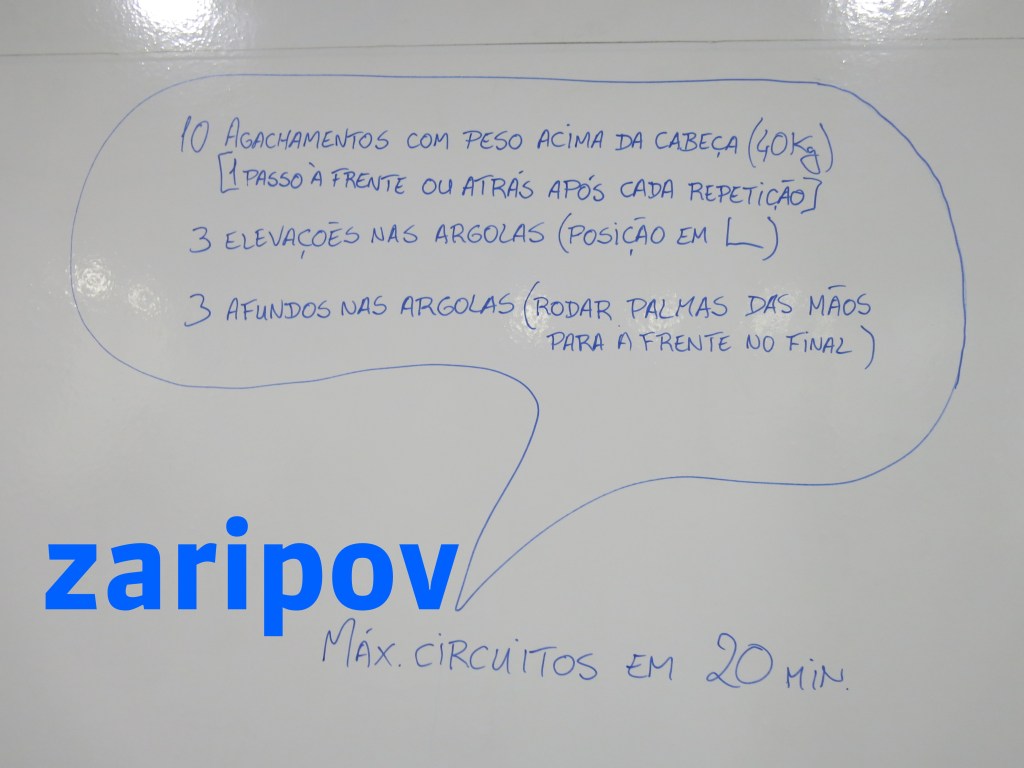 10 AGACHAMENTOS COM PESO ACIMA DA CABEÇA (40Kg)
[1 PASSO À FRENTE OU ATRÁS APÓS CADA REPETIÇÃO]
3 ELEVAÇÕES NAS ARGOLAS (POSIÇÃO EM L)
3 AFUNDOS NAS ARGOLAS (RODAR PALMAS DAS MÃOS
PARA A FRENTE NO FINAL)
zaripov
MÁX. CIRCUITOS EM 20 MIN.